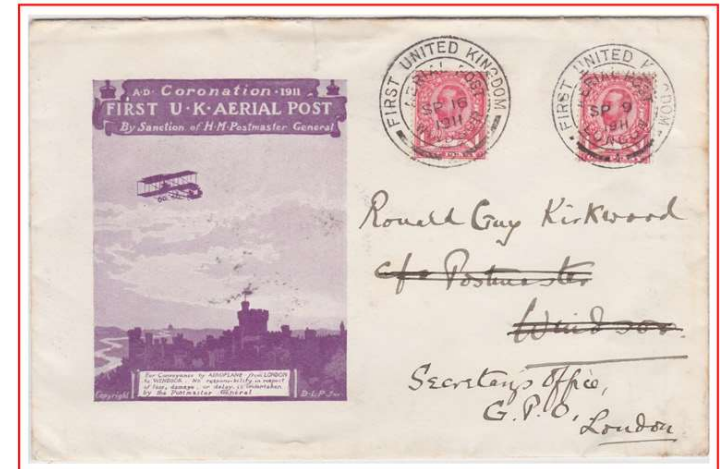 A·D· Coronation ·1911
FIRST U·K·AERIAL POST
By Sanction of H·M·Postmaster General
For Conveyance by AEROPLANE from LONDON
to WINDSOR. No responsibility in respect
of loss, damage, or delay is undertaken
by the Postmaster General
Copyright
FIRST UNITED KINGDOM
AERIAL POST
SP 16
1911
WINDSOR
FIRST UNITED KINGDOM
AERIAL POST
SP 9
1911
LONDON
Ronald Guy Kirkwood
c/o Postmaster
Windsor.
Secretary's Office,
G.P.O,
London.